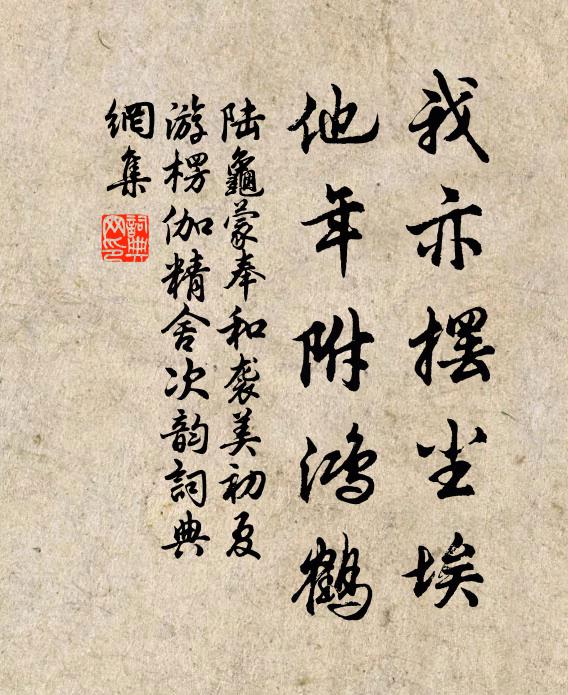 我亦摆尘埃
他年附鸿鹤
陆龜蒙奉和袭美初夏
游楞伽精舍次韵詞典
網集
詞典網印